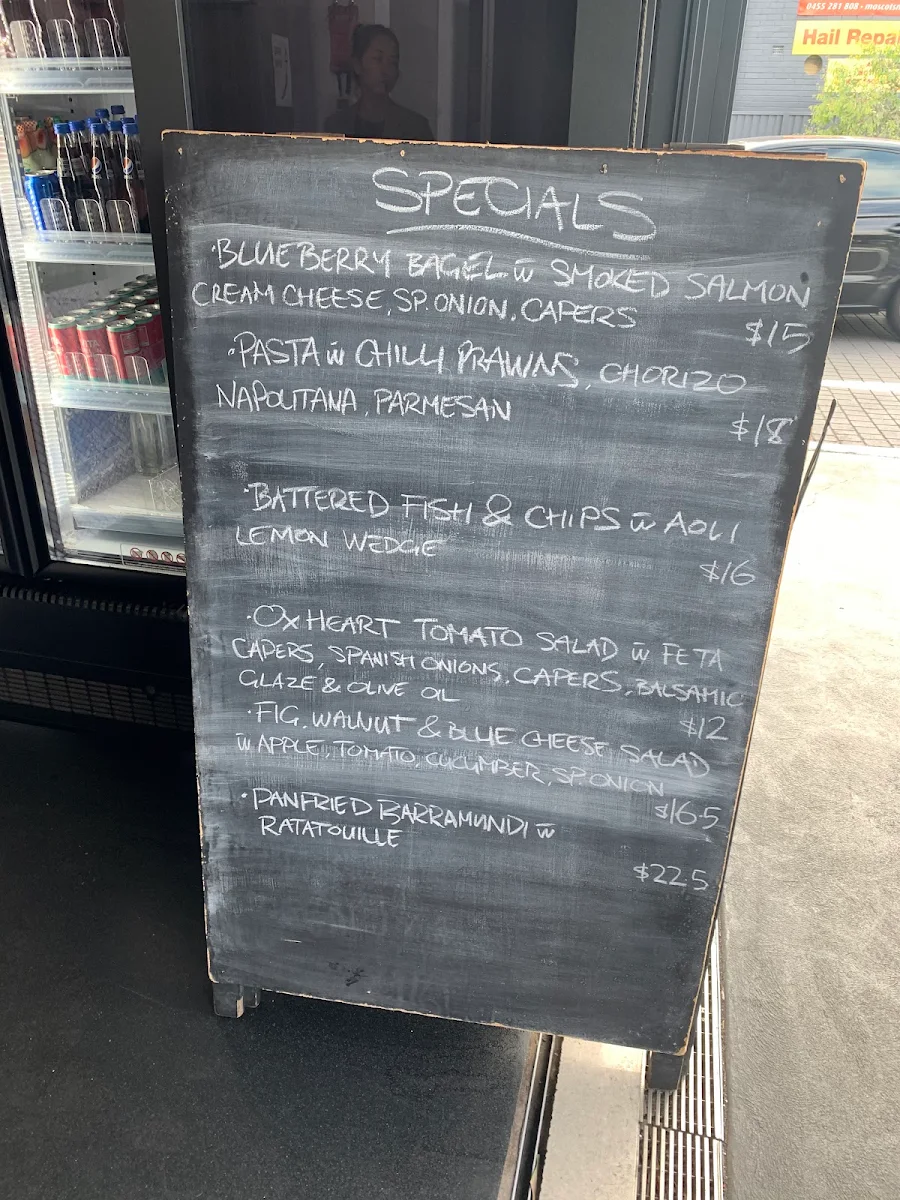 0455 281 808
Hail Repai
SPECIALS
·BLUEBERRY BAGEL w̄ SMOKED SALMON
CREAM CHEESE, SP. ONION, CAPERS
$15
·PASTA w̄ CHILLI PRAWNS, CHORIZO
NAPOLITANA, PARMESAN
$18
·BATTERED FISH & CHIPS w̄ AOLI
LEMON WEDGE
$16
·OX HEART TOMATO SALAD w̄ FETA
CAPERS, SPANISH ONIONS, CAPERS, BALSAMIC
GLAZE & OLIVE OIL
$12
·FIG, WALNUT & BLUE CHEESE SALAD
w̄ APPLE, TOMATO, CUCUMBER, SP. ONION
$16.5
·PANFRIED BARRAMUNDI w̄
RATATOUILLE
$22.5